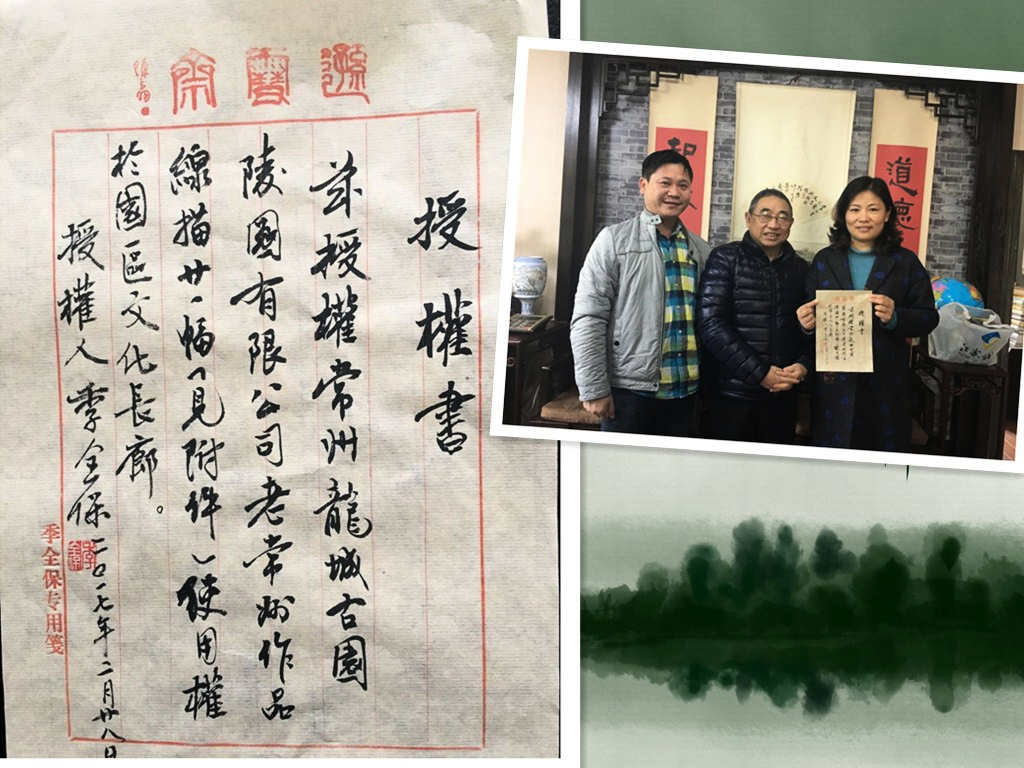 授權書
茲授權常州龍城古園
陵園有限公司老常州作品
線描廿一幅（見附件）使用權
於園區文化長廊。
授權人季全保二〇一七年二月廿八日
季全保专用笺
道
授權書